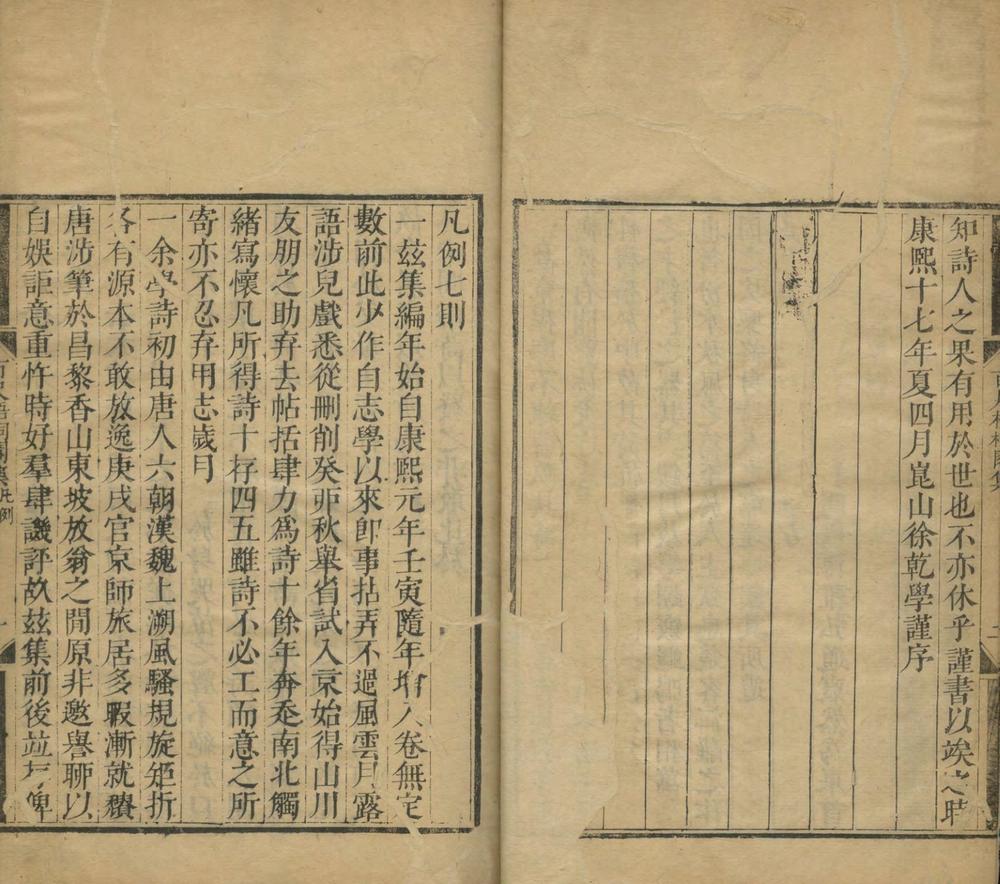 知詩人之果有用於世也不亦休乎謹書以竢之時
康熙十七年夏四月崑山徐乾學謹序
凡例七則
一茲集編年始自康熙元年壬寅隨年增入卷無定
數前此少作自志學以來卽事拈弄不過風雲月露
語涉兒戲悉從刪削癸卯秋舉省試入京始得山川
友朋之助弃去帖括肆力爲詩十餘年奔走南北觸
緒寫懷凡所得詩十存四五雖詩不必工而意之所
寄亦不忍弃用志歲月
一余學詩初由唐人六朝漢魏上溯風騷規旋矩折
各有源本不敢放逸庚戌官京師旅居多暇漸就頹
唐涉筆於昌黎香山東坡放翁之間原非邀譽聊以
自娛詎意重忤時好羣肆譏評故茲集前後並存俾
凡例
一